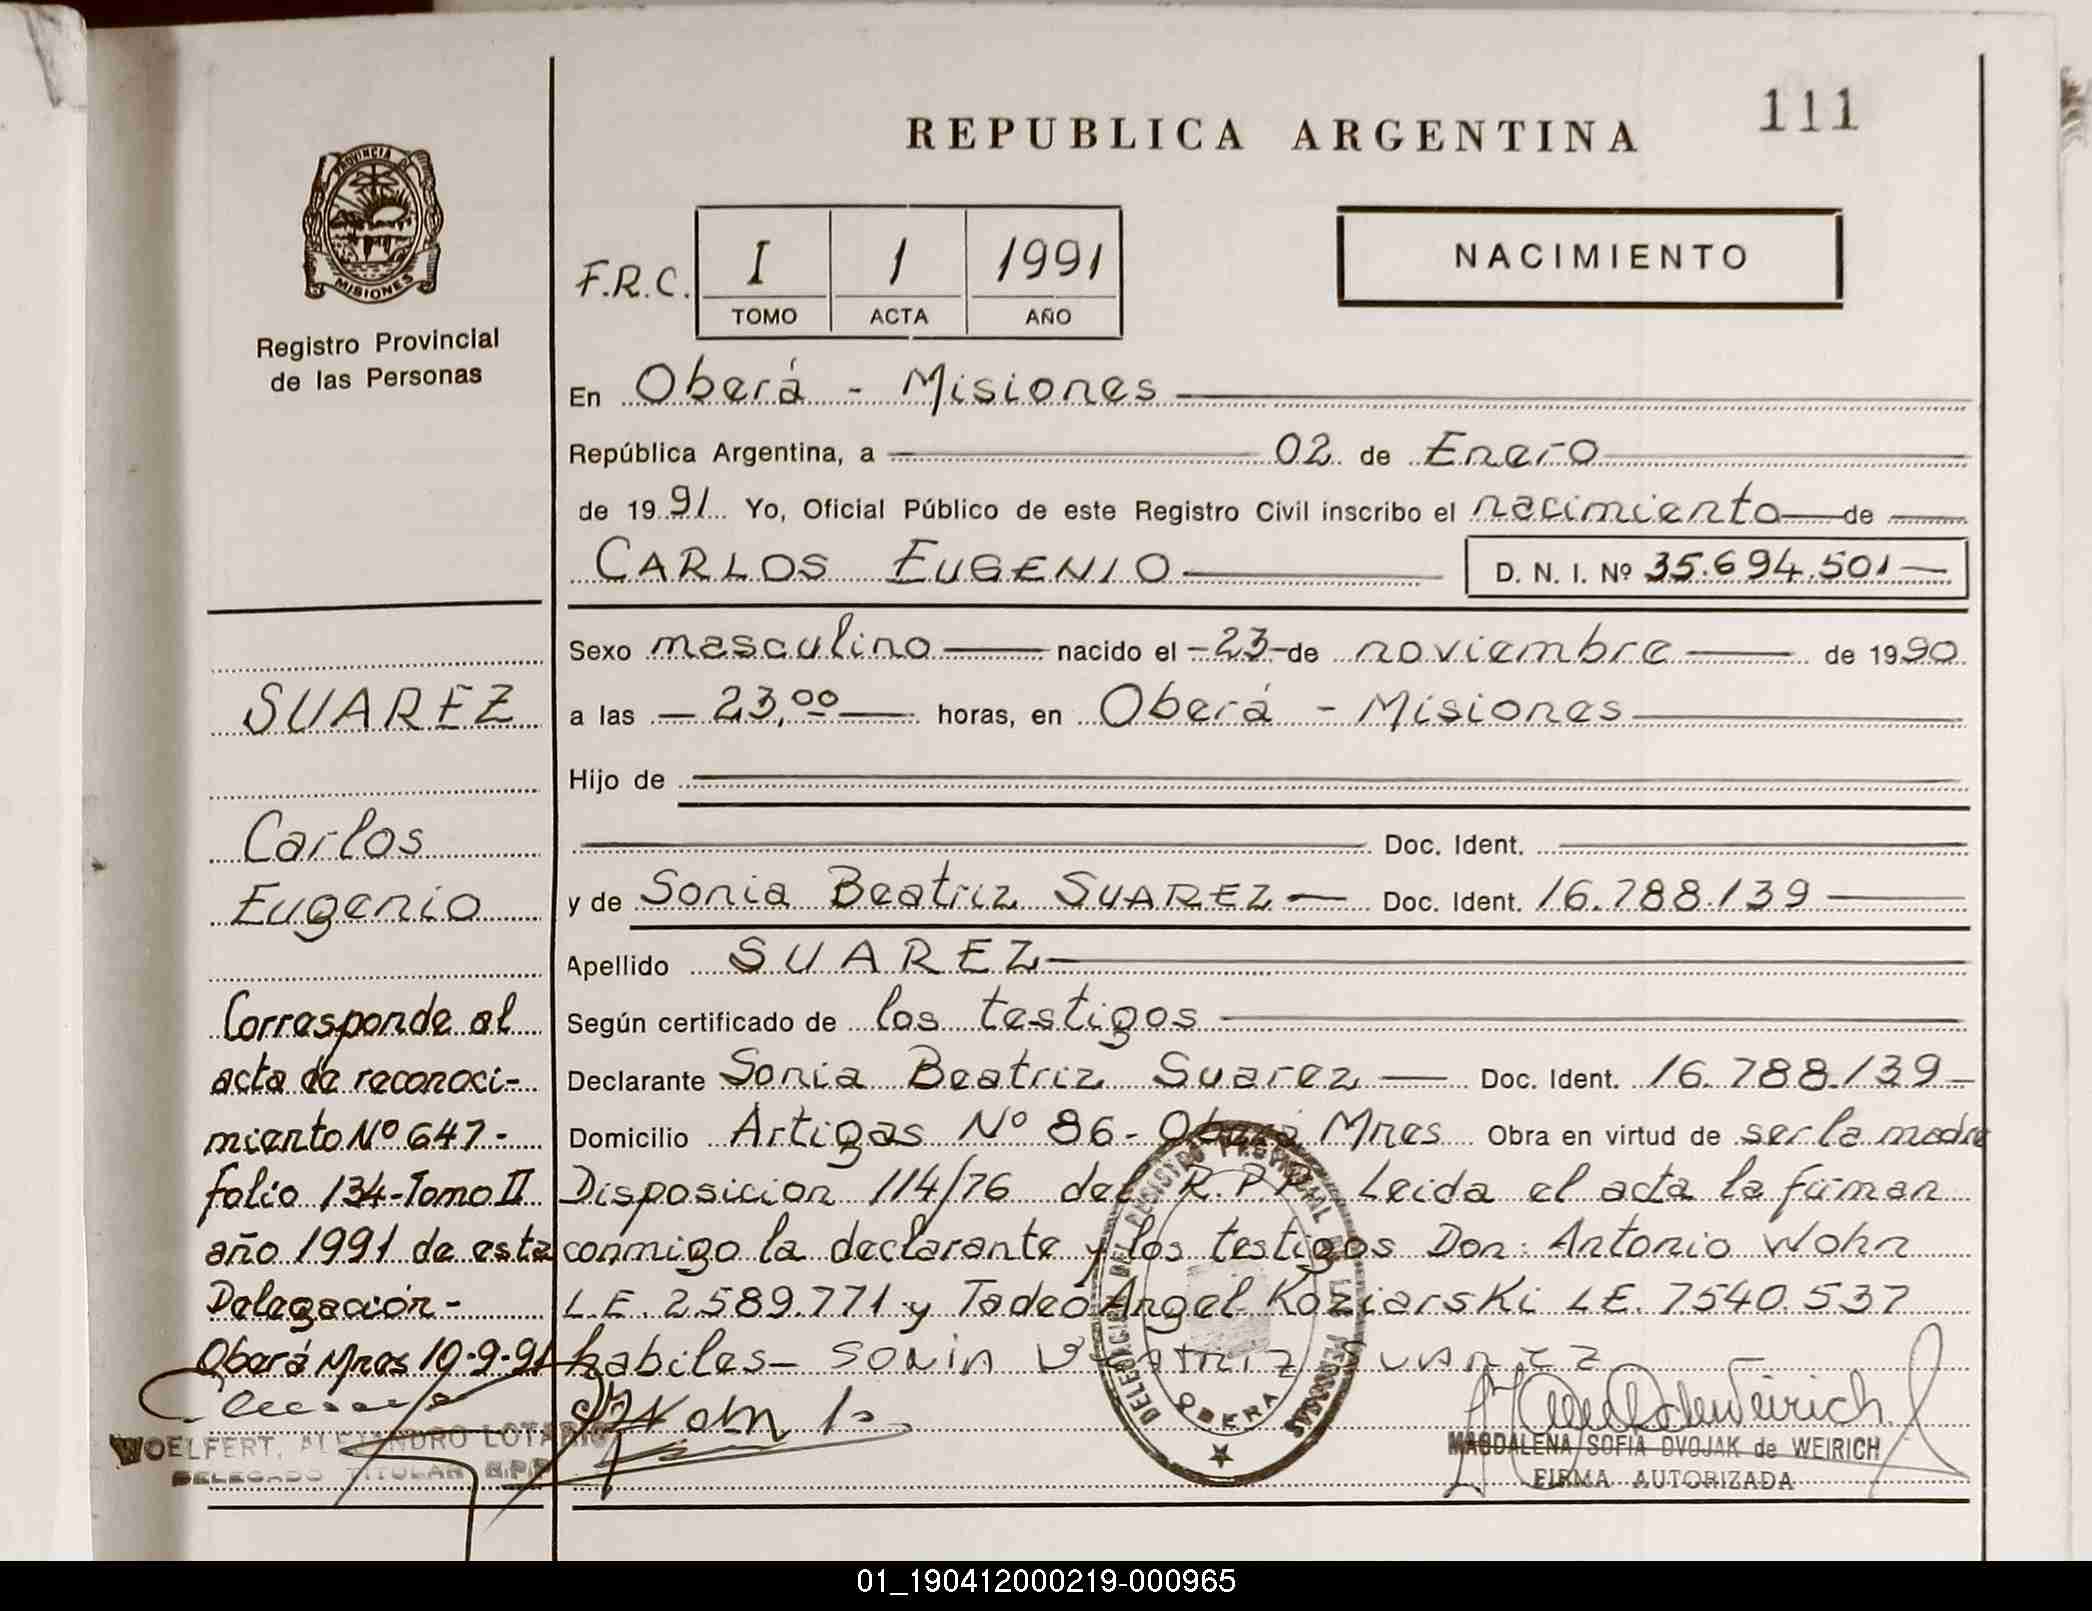 111
REPUBLICA ARGENTINA
PROVINCIA DE
MISIONES
Registro Provincial
de las Personas
F.R.C. I 1 1991
TOMO ACTA AÑO
NACIMIENTO
En Oberá - Misiones
República Argentina, a 02 de Enero
de 1991 Yo, Oficial Público de este Registro Civil inscribo el nacimiento de
CARLOS EUGENIO D. N. I. Nº 35.694.501
Sexo masculino nacido el 23 de noviembre de 1990
a las 23,00 horas, en Oberá - Misiones
Hijo de
Doc. Ident.
y de Sonia Beatriz SUAREZ Doc. Ident. 16.788.139
Apellido SUAREZ
Según certificado de los testigos
Declarante Sonia Beatriz Suarez Doc. Ident. 16.788.139
Domicilio Artigas Nº 86 - Oberá Mnes Obra en virtud de ser la madre
Disposicion 114/76 del R.P.P. Leida el acta la firman
conmigo la declarante y los testigos Don: Antonio Wohn
L.E. 2.589.771 y Tadeo Angel Koziarski L.E. 7540.537
habiles
SUAREZ
Carlos
Eugenio
Corresponde al
acta de reconoci-
miento Nº 647-
folio 134-Tomo II
año 1991 de esta
Delegación-
Oberá Mnes 10-9-91
WOELFERT, ALEJANDRO LOTARIO
DELEGADO TITULAR R.P.P.
DELEGACION DEL REGISTRO PROVINCIAL DE LAS PERSONAS
OBERA
MAGDALENA SOFIA DVOJAK de WEIRICH
FIRMA AUTORIZADA
01_190412000219-000965